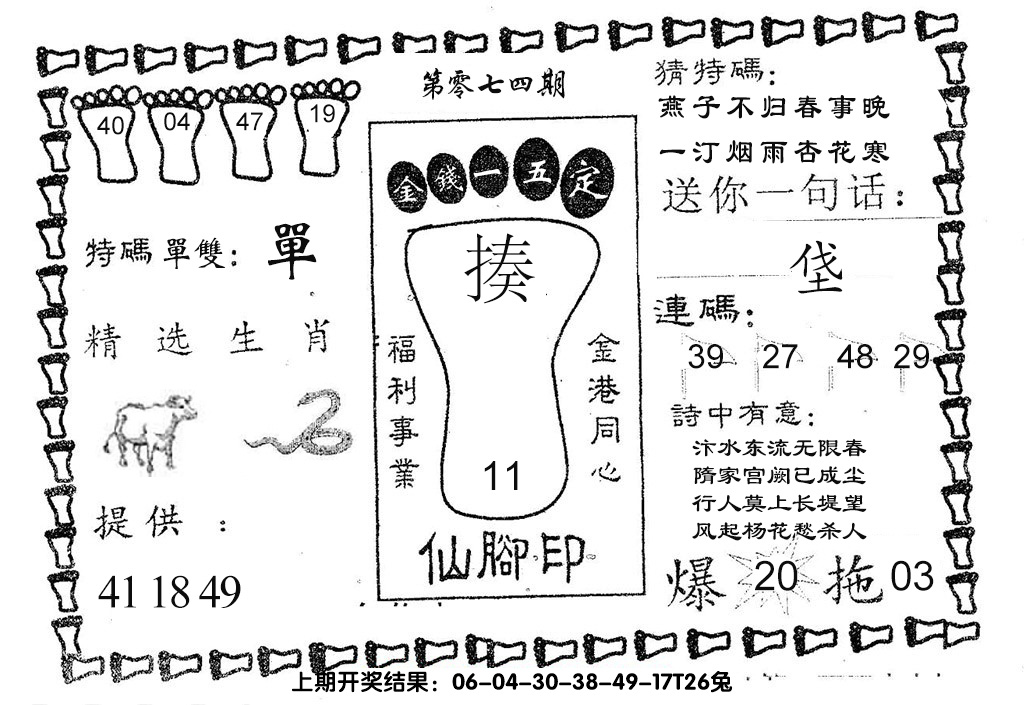 第零七四期
40 04 47 19
特碼單雙：單
精选生肖
提供：
41 18 49
金錢一五定
揍
福利事業
金港同心
11
仙腳印
猜特碼：
燕子不归春事晚
一汀烟雨杏花寒
送你一句话：
垡
連碼：
39 27 48 29
詩中有意：
汴水东流无限春
隋家宫阙已成尘
行人莫上长堤望
风起杨花愁杀人
爆 20 拖 03
上期开奖结果：06-04-30-38-49-17T26兔